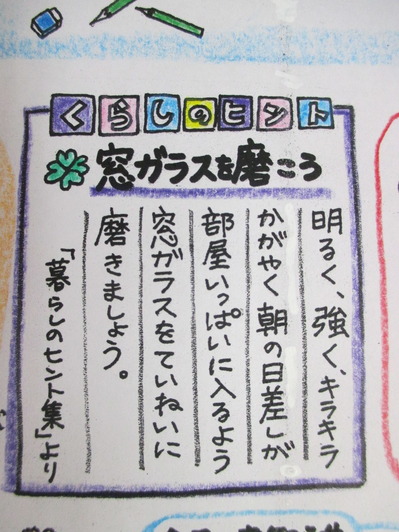 くらしのヒント
窓ガラスを磨こう
明るく、強く、キラキラ
かがやく朝の日差しが
部屋いっぱいに入るよう
窓ガラスをていねいに
磨きましょう。
「暮らしのヒント集」より